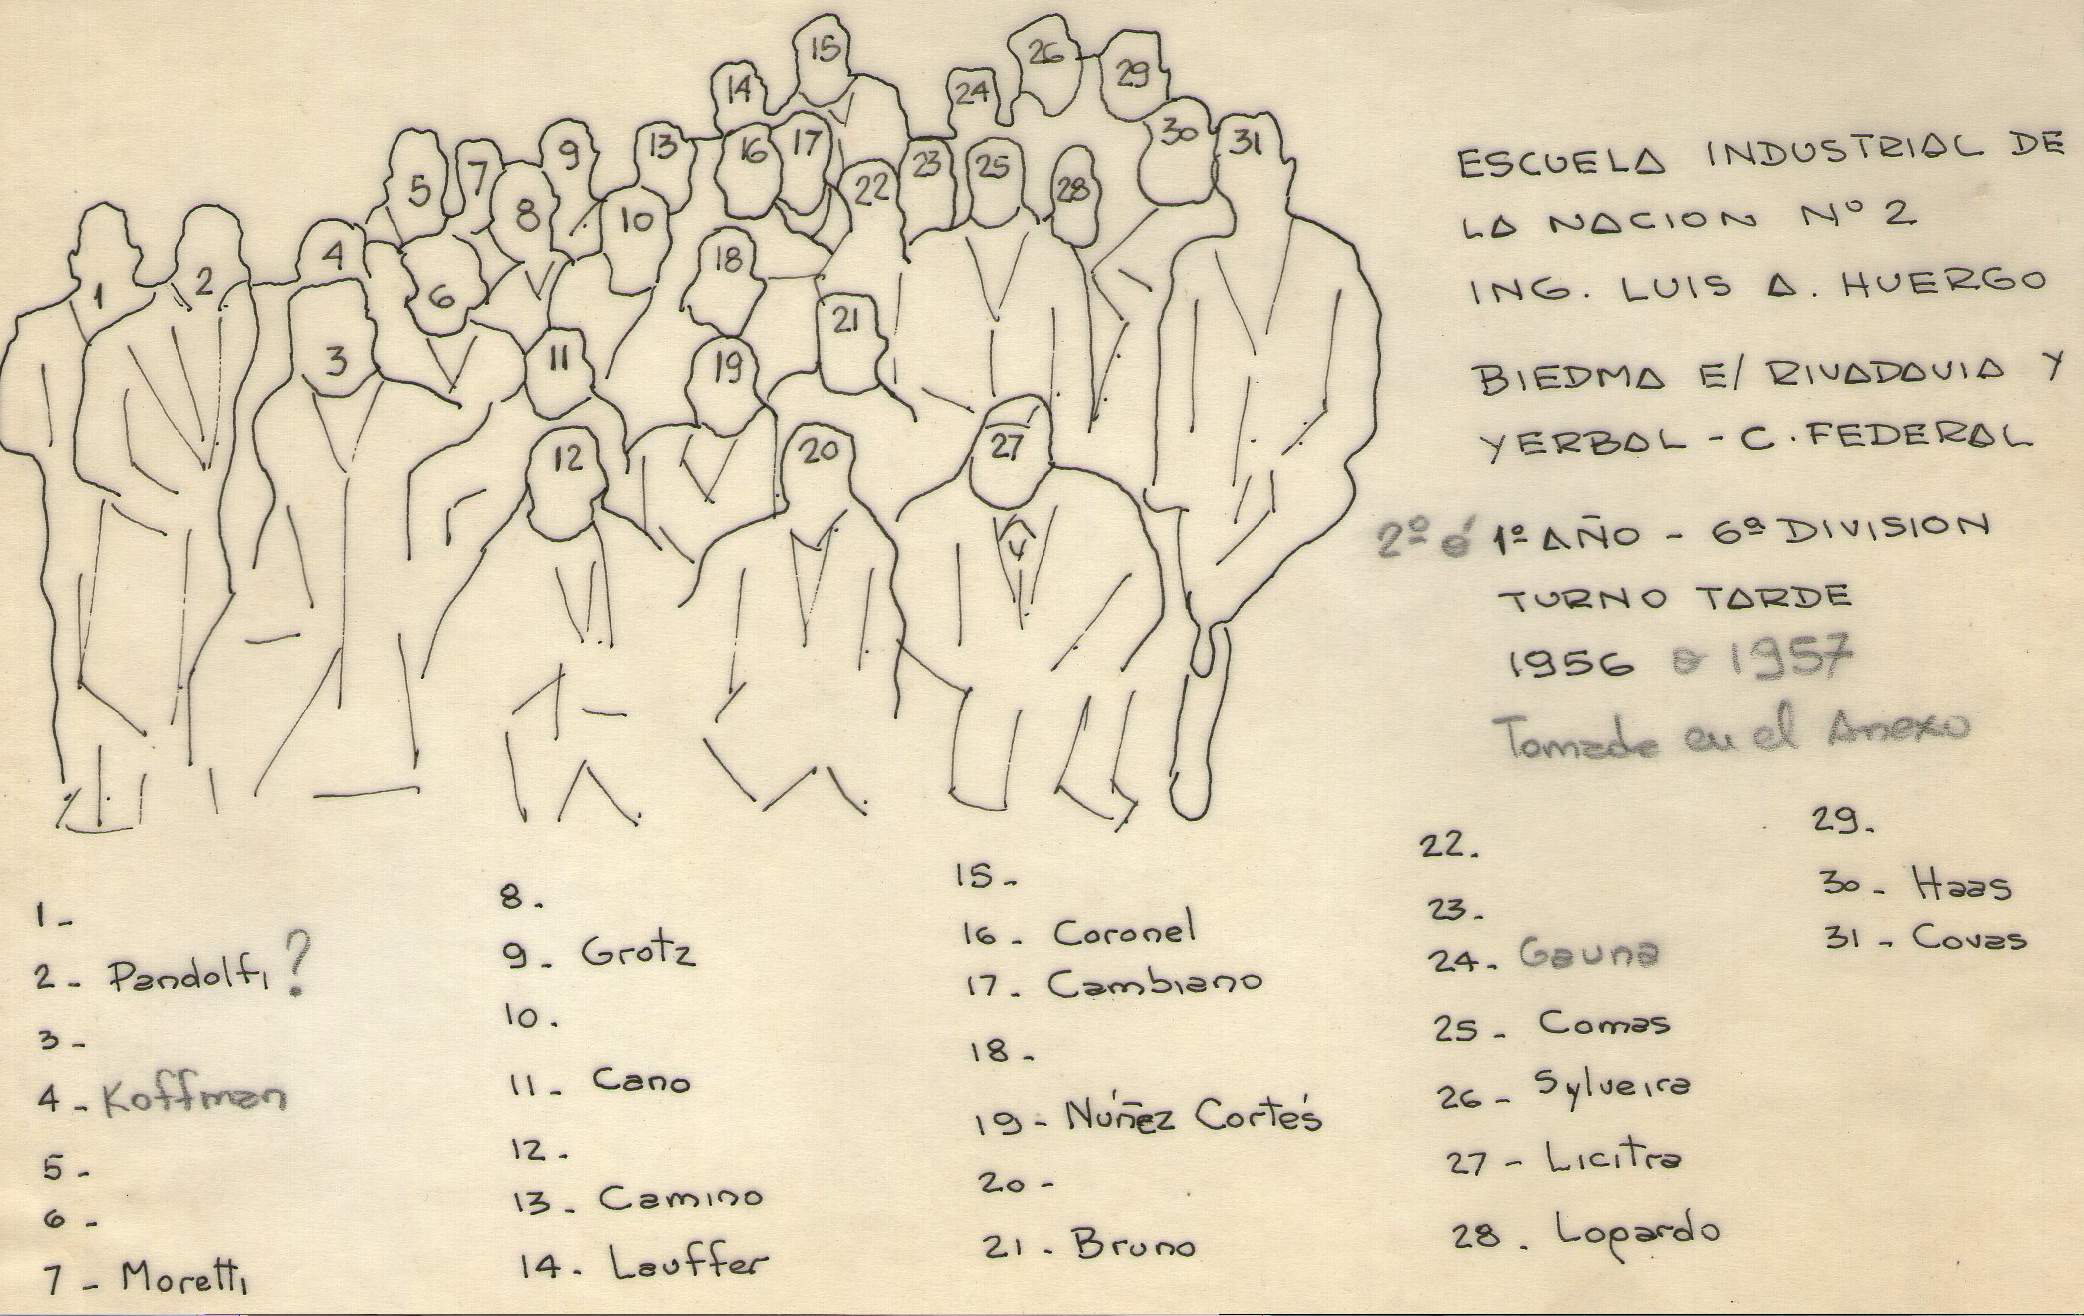 15
26
14
24
29
5
7
9
13
16
17
23
25
30
31
8
10
22
28
1
2
4
6
18
3
11
19
21
12
20
27
ESCUELA INDUSTRIAL DE
LA NACION Nº 2
ING. LUIS A. HUERGO
BIEDMA E/ RIVADAVIA Y
YERBAL - C. FEDERAL
2º ó 1º AÑO - 6ª DIVISION
TURNO TARDE
1956 o 1957
Tomada en el Anexo
1-
2- Pandolfi ?
3-
4- Koffman
5-
6-
7- Moretti
8.
9- Grotz
10.
11- Cano
12.
13. Camino
14. Lauffer
15-
16- Coronel
17. Cambiano
18-
19- Núñez Cortés
20-
21. Bruno
22.
23.
24. Gauna
25- Comas
26- Sylveira
27- Licitra
28. Lopardo
29.
30- Haas
31- Covas